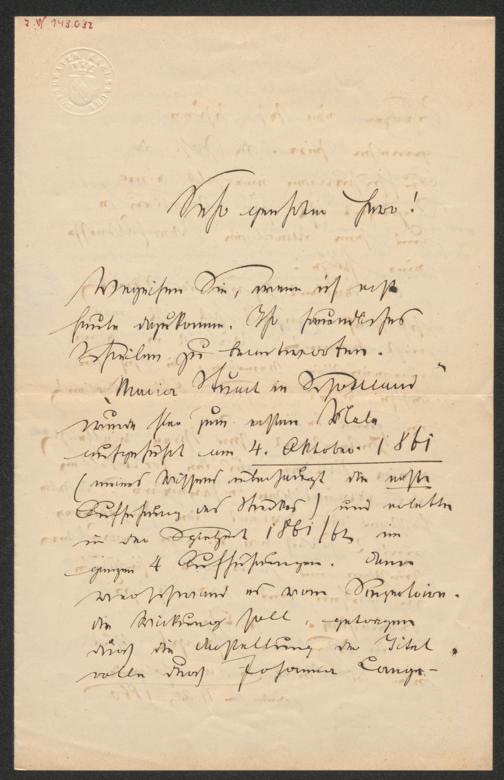 J.N. 143.032
Sehr geehrter Herr!
Verzeihen Sie, wenn ich erst
heute dazukomme, Ihr freundliches
Schreiben zu beantworten.
"Maria Stuart in Schottland"
wurde hier zum ersten Male
aufgeführt am 4. Oktober 1861
(meines Wissens überhaupt die erste
Aufführung des Stückes) und erlebte
in der Spielzeit 1861/62 im
ganzen 4 Aufführungen. Dann
verschwand es vom Repertoire.
Die Wirkung soll, getragen
durch die Darstellung der Titel-
rolle durch Johanna Lange-